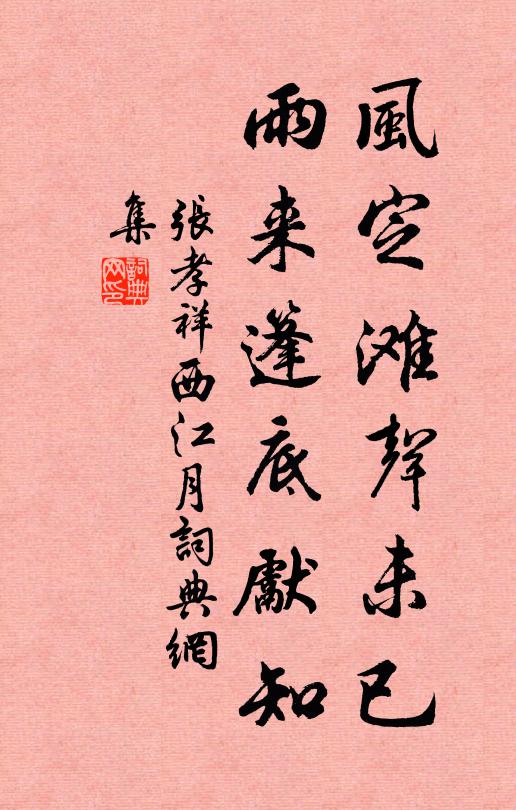 風定滩聲未已
雨来篷底獻知
張孝祥西江月詞典網
集
詞典網印